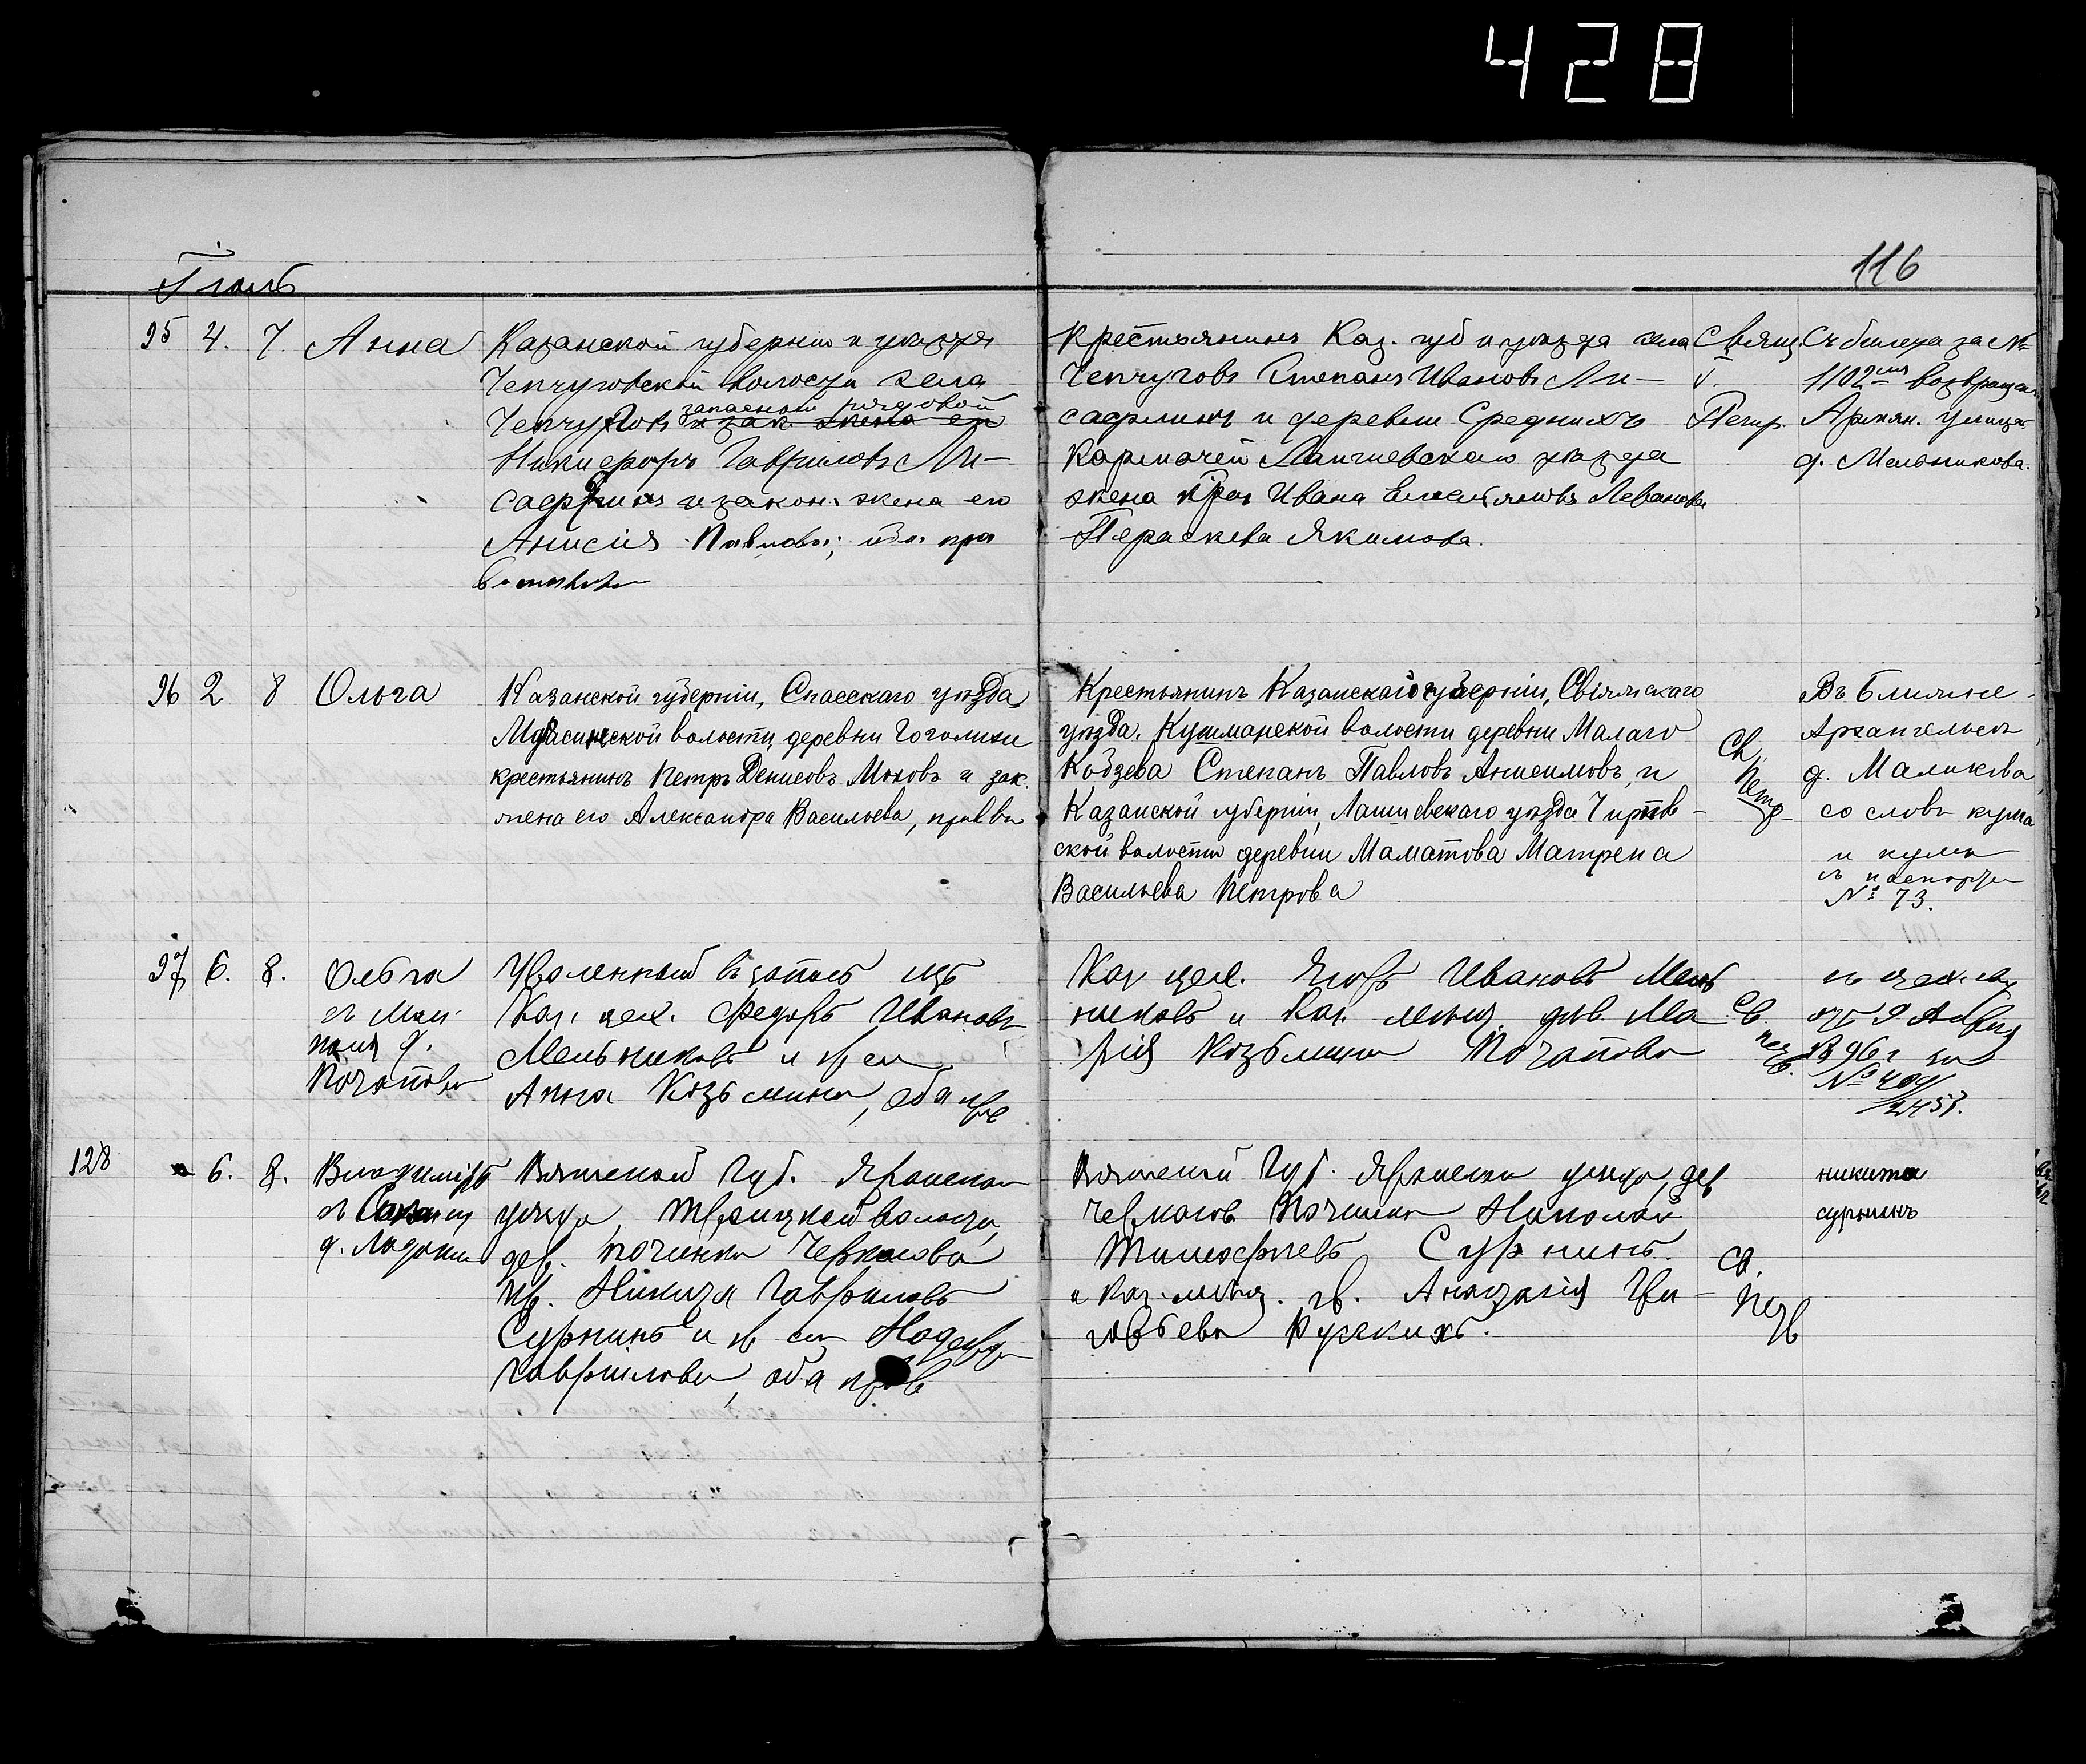 428
116
Іюль
95 4. 7. Анна
Казанской губерніи и уѣзда
Чепчуговской волости села
Чепчуговъ запасной рядовой
и зак. жена его
Никифоръ Гавриловъ Ли-
сафинъ и закон. жена его
Анисія Павлова; оба пра
вославные
Крестьянинъ Каз. губ и уѣзда села
Чепчуговъ Степанъ Ивановъ Ли-
сафинъ и деревни Среднихъ
Кармачей Лаишевскаго уѣзда
жена Крес Ивана Емельянова Леванова
Параскева Якимова.
Свящ.
Петр.
Съ билета за №
1102мъ возвращен.
Армян. улица
д. Мельникова.
96 2 8 Ольга
Казанской губерніи, Спасскаго уѣзда,
волости, деревни Гоголихи
крестьянинъ Петръ Денисовъ Моховъ и зак.
жена его Александра Васильева, прав вѣ
Крестьянинъ Казанской губерніи, Свіяжскаго
уѣзда, Кушманской волости деревни Малаго
Кобзева Степанъ Павловъ Анисимовъ, и
Казанской губерніи, Лаишевскаго уѣзда Чирпов-
ской волости деревни Маматова Матрена
Васильева Петрова
Св.
Петр
Въ Ближне-
Архангельск
д. Маликова
со словъ кума
и кумы
и паспорта
№ 73.
97 6. 8. Ольга
д.
Потапова
Уволенный въ запасъ изъ
Каз. цех. Федоръ Ивановъ
Мельниковъ и ж его
Анна Козьмина, оба пра
Каз цех. Егоръ Ивановъ Мель
никовъ и Каз. мѣщ. дѣв. Ма
рія Козьмина Потапова
Св.
Петр.
отъ 9 Апрѣля
1896 г за
№ 404/2458.
128 6. 8. Владиміръ
д.
Вятской Губ. Яранскаго
уѣзда, Троицкой волости,
дер. Починка Черкасова
кр. Никита Гавриловъ
Сурнинъ и ж его Надежда
Гаврилова, оба прав
Вятской Губ. Яранскаго уѣзда, дер
Черкасов Починка Николай
Тимофеевъ Сурнинъ.
и Каз. мѣщ. дѣв. Анастасія Гри
горьева Русскихъ.
Св.
Петр
никита
сурнинъ